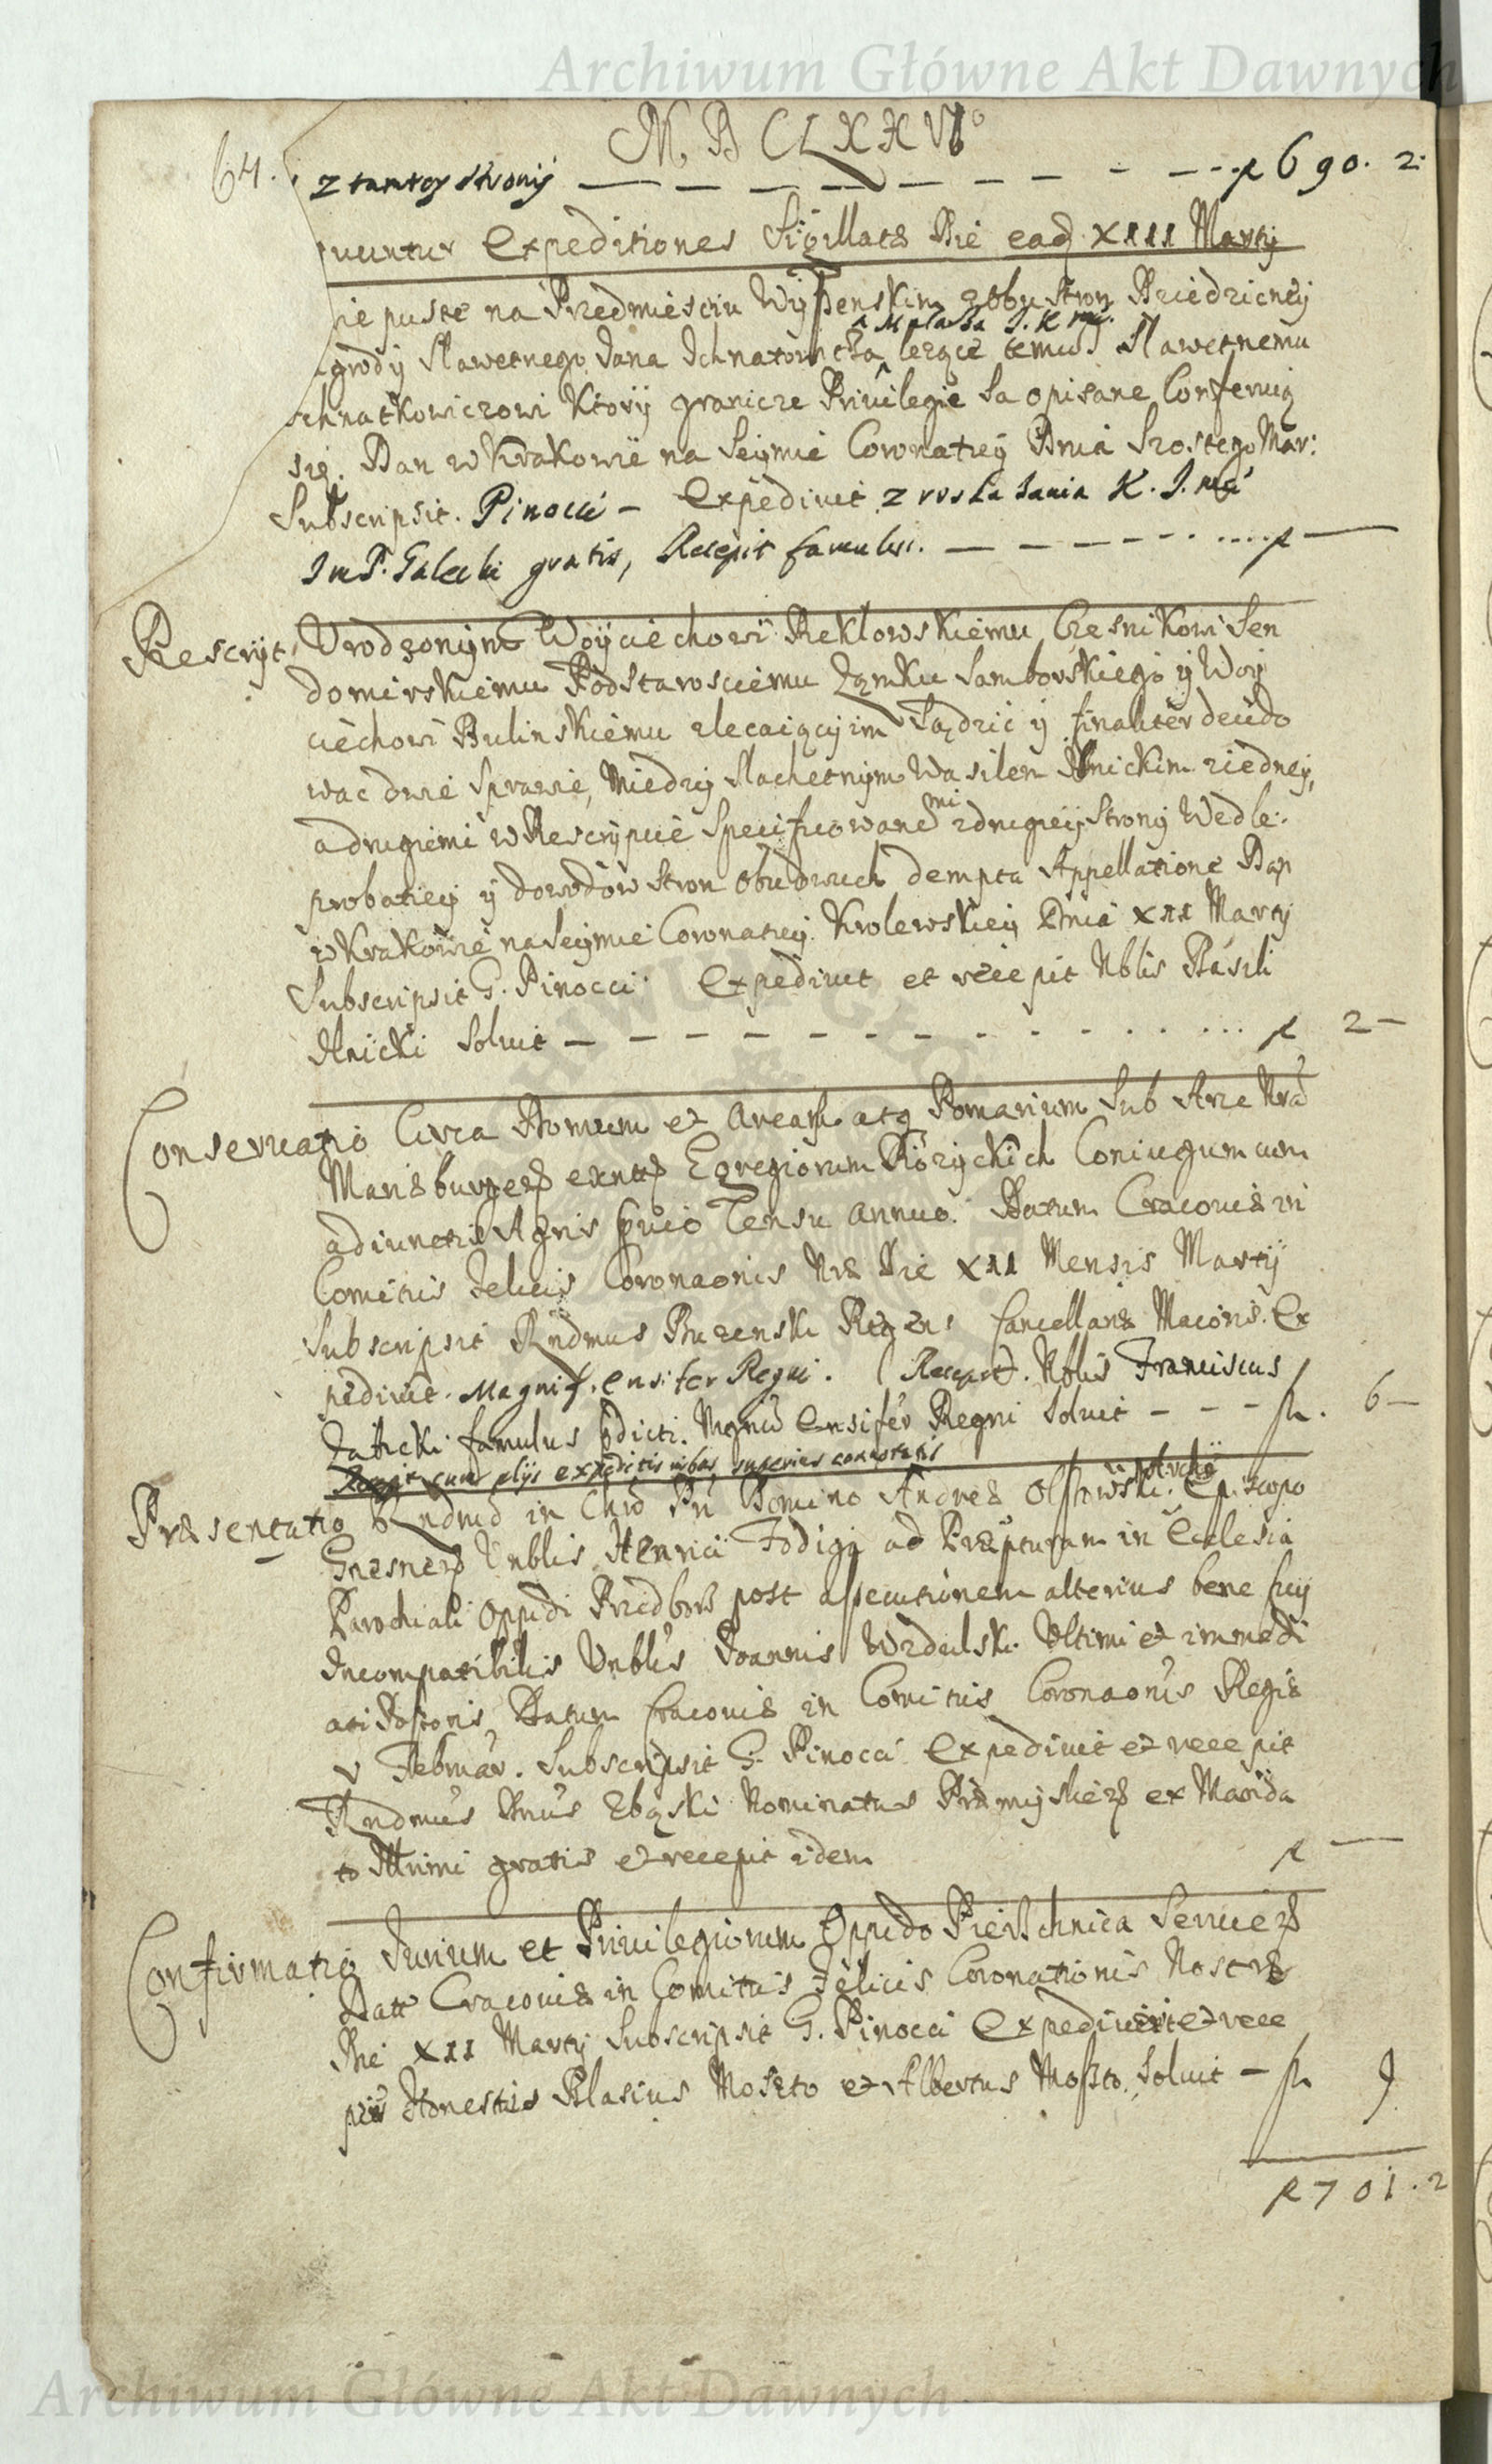 Archiwum Główne Akt Dawnych
M. D CLXXVI°
64.
z tamtey strony — — — — — — — - - - - f 690. 2.
uuntur Expeditiones Sigillatæ Die ead. XIII Martij
ie puste na Przedmiesciu z obu stron Dziedziczney
a Matassa J. K Mci.
grody Slawetnego Jana lezące temuż Slawetnemu
chnatkowiczowi Ktory granicze Priuilegie sa opisane Conferuią
się. Dan w Krakowie na Seymie Coronatiey Dnia Szostego Mar:
Subscripsit. Pinocci – Expediuit z roskazania K. J. Mci
Im P. Galecki gratis, Recepit famulus. — — — — - - .... f —
Rescrypt. Vrodzonym Woyciechowi Reklowskiemu Czesnikowi Sen
domirskiemu Podstarosciemu Zamku Samborskiego y Woy
ciechowi Bulinskiemu zlecaiącym Sądzić y finaliter decido
wac dwie Sprawie, Miedzy Slachetnym Wasilem Ilnickim z iedney,
a drugiemi w Rescrypcie Specificowanemi z drugiey Strony Wedle.
probatiey y dowodow Stron obudwuch dempta Appellatione Dan
w Krakowie na Seymie Coronatiey Krolewskiey Dnia XII Martij
Subscripsit G. Pinocci. Expediuit et recepit Nblis Basili
Ilnicki Soluit — — — — — — - - - - - ... f 2 —
Conseruatio Circa Domum et Aream atq Pomarium Sub Arce Nra
Mariæburgeñ Egregiorum Rozyckich Coniugum cum
adiunctis Agris Censu annuo. Datum Cracouiæ in
Comitiis felicis Coronaonis Nræ Die XII Mensis Martij
Subscripsit Rndmus Buzenski Regens Cancellariæ Maioris. Ex
pediuit. Magnif. Ensifer Regni. Recepit. Nblis Franciscus
Zaticki famulus pdicti. Mgnci Ensifer Regni Soluit — — — f. 6 —
cum alijs expeditis superius connotatis
Præsentatio Rndmo in Chro Pri Domino Andreæ Olszowski. Archi Episcopo
Gnesneñ Vnblis Henrici Fodiga ad Præpturam in Ecclesia
Parochiali Oppidi Przedborz post assecutionem alterius beneficij
Incompatibilis Vnblis Joannis Wzdulski. Vltimi et immedi
ati Posoris Datum Cracouiæ in Comitiis Coronaonis Regiæ
V Februar. Subscripsit G. Pinocci Expediuit et recepit
Rndmus Dnus Zbąski Nominatus Præmysleñ ex Manda
to Illmi gratis et recepit idem f —
Confirmatio Jurium et Priuilegiorum Oppido Pierschnica Seruieñ
Datt Cracouiæ in Comitiis felicis Coronationis Nostræ
Die XII Martij Subscripsit G. Pinocci Expediuit et rece
pit Honestus Blasius Moszto et Albertus Moszto. Soluit — f 9
f 701. 2
Archiwum Główne Akt Dawnych